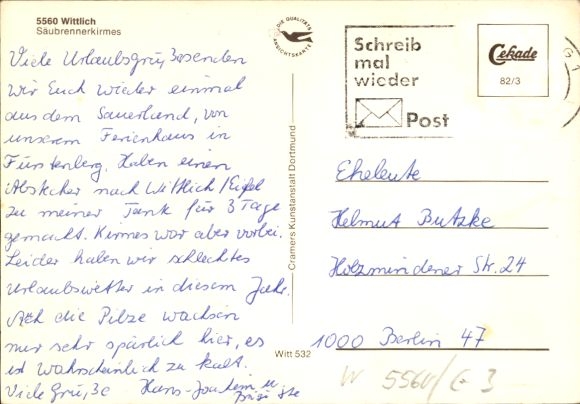 5560 Wittlich
Säubrennerkirmes
Viele Urlaubsgrüße senden
wir Euch wieder einmal
aus dem Sauerland, von
unserem Ferienhaus in
Fürstenberg. Haben einen
Abstecher nach Wittlich/Eifel
zu meiner Tante für 3 Tage
gemacht. Kirmes war aber vorbei.
Leider haben wir schlechtes
Urlaubswetter in diesem Jahr.
Auch die Pilze wachsen
nur sehr spärlich hier, es
ist wahrscheinlich zu kalt.
Viele Grüße Hans-Joachim u.
DIE QUALITÄTS
ANSICHTSKARTE
Cramers Kunstanstalt Dortmund
Witt 532
Schreib
mal
wieder
Post
Cekade
82/3
Eheleute
Helmut Butzke
Holzmindener Str. 24
1000 Berlin 47
W 5560/G 3